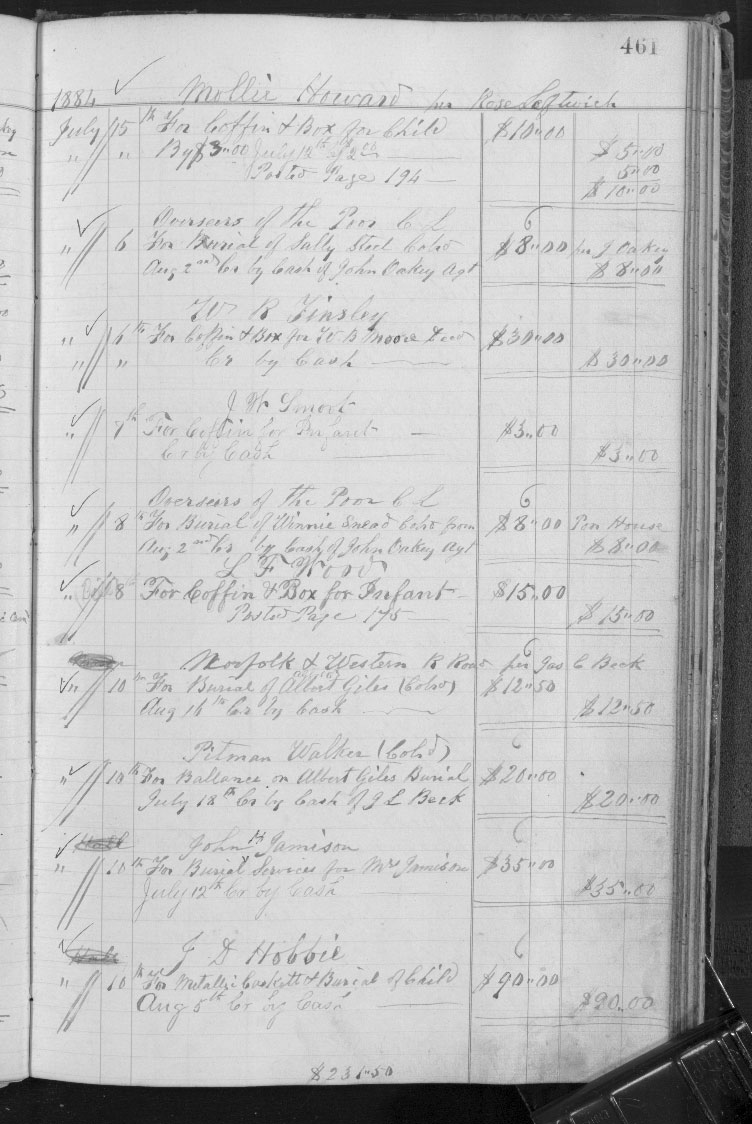 461
1884 Mollie Howard per Rose Leftwich
July 15th For Coffin & Box for Child $10.00
" " By $3.00 July 12th $2.00 $5.00
5.00
Posted Page 194 $10.00
Overseers of the Poor C L 6
" 6 For Burial of Sally Steel Cold $8.00 per J Oakey
Aug 2nd Cr by Cash of John Oakey Agt $8.00
W R Tinsley
" 6th For Coffin & Box for W B Moore Decd $30.00
" " Cr by Cash $30.00
J W Smort
" 7th For Coffin for Infant $3.00
Cr by Cash $3.00
Overseers of the Poor C L 6
" 8th For Burial of Winnie Snead Cold from $8.00 Poor House
Aug 2nd Cr by Cash of John Oakey Agt $8.00
L F Word
" 8 For Coffin & Box for Infant $15.00
Posted Page 175 $15.00
Norfolk & Western R Road per Jas C Beck
" 10th For Burial of Albert Giles (Cold) $12.50
Aug 16th Cr by Cash $12.50
Pitman Walker (Cold) 6
" 10th For Ballance on Albert Giles Burial $20.00
July 18th Cr by Cash of J L Beck $20.00
John H Jamison 6
" 10th For Burial Services for Mrs Jamison $35.00
July 12th Cr by Cash $35.00
J D Hobbie 6
" 10th For Metallic Caskett & Burial of Child $90.00
Aug 5th Cr by Cash $90.00
$231.50